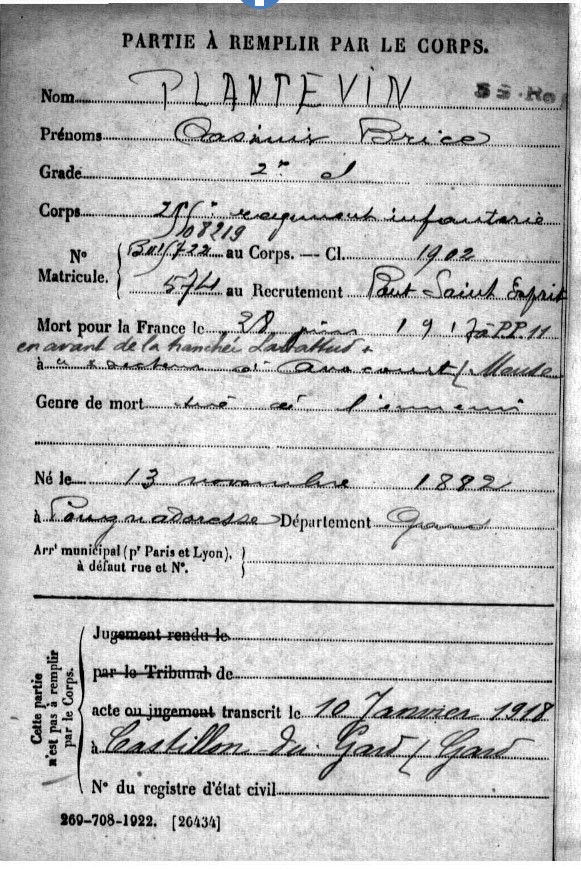 PARTIE À REMPLIR PAR LE CORPS.
Nom PLANTEVIN
Prénoms Casimir Brice
Grade 2e cl
Corps 255e regiment infanterie
08219
N° Matricule. { Bau/722 au Corps. — Cl. 1902
574 au Recrutement Pont Saint Esprit
Mort pour la France le 28 juin 1917 à PP 11
en avant de la tranchée +
à " secteur d'Avocourt (Meuse
Genre de mort tué à l'ennemi
Né le 13 novembre 1882
à Pougnadoresse Département Gard
Arrt municipal (pr Paris et Lyon), }
à défaut rue et N°.
Cette partie n'est pas à remplir par le Corps.
Jugement rendu le
par le Tribunal de
acte ou jugement transcrit le 10 Janvier 1918
à Castillon-du-Gard (Gard
N° du registre d'état civil
269-708-1922. [26434]